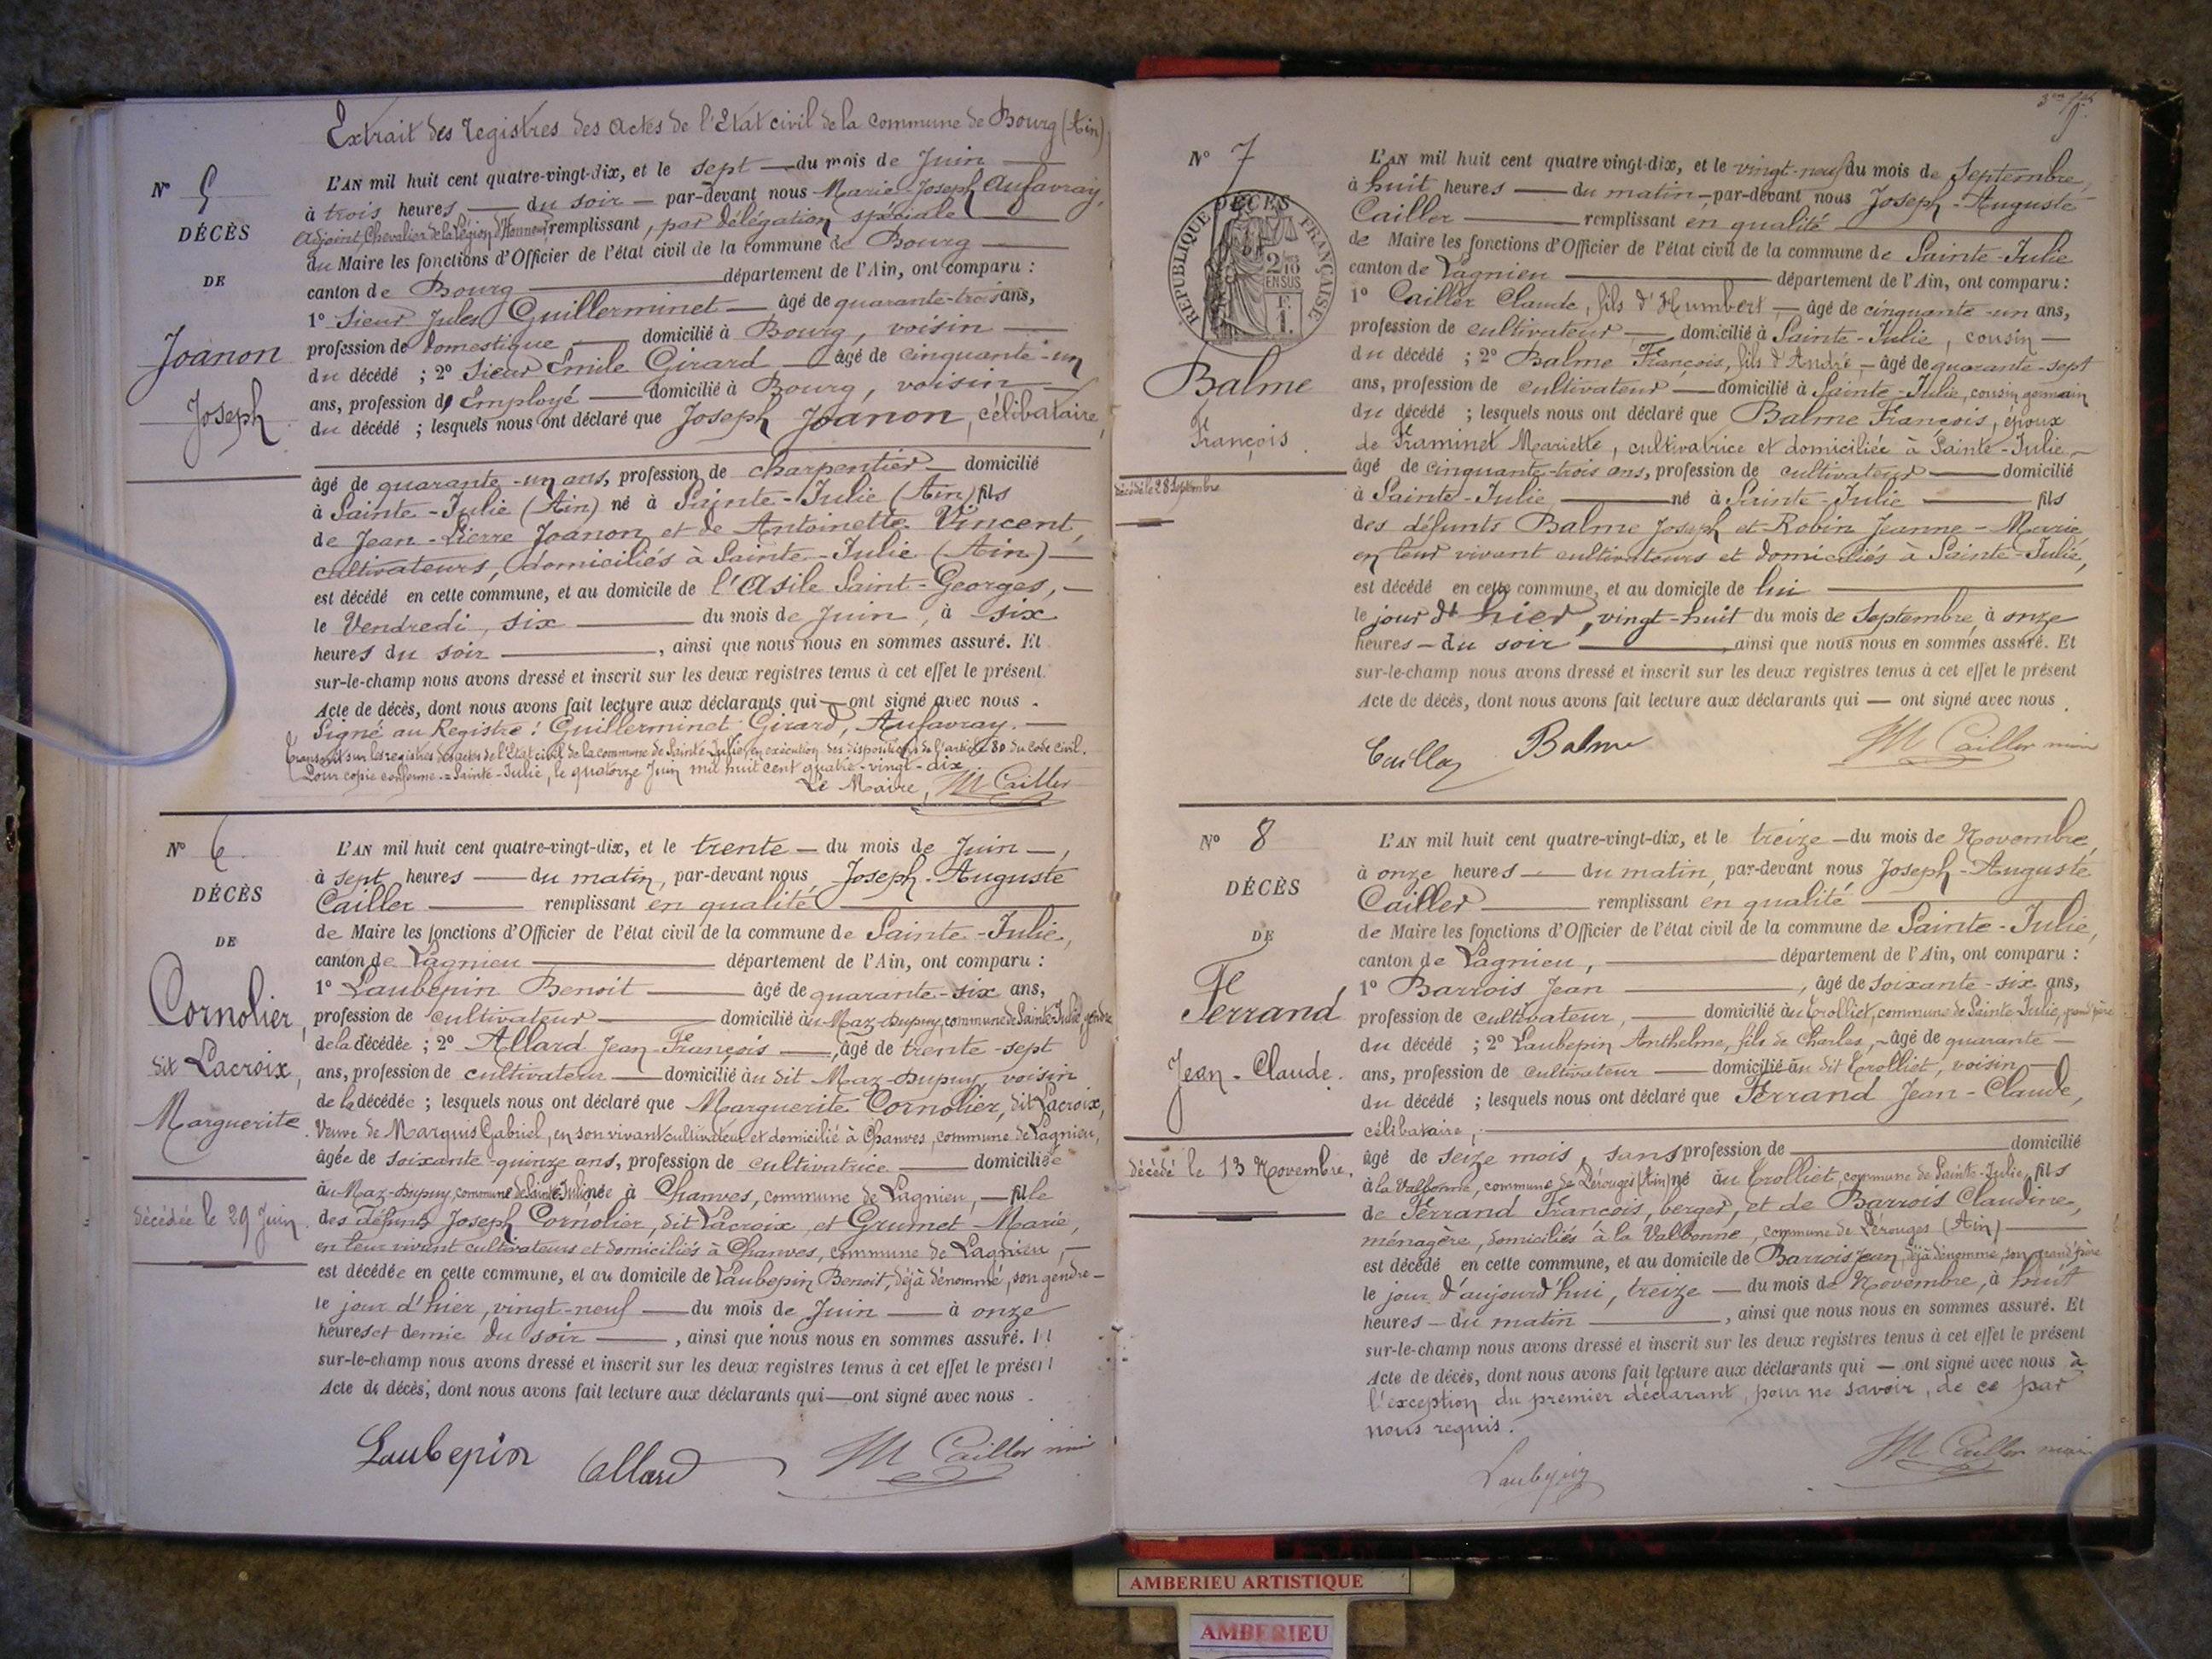 Extrait des registres des actes de l'Etat civil de la commune de Bourg (Ain)
N° 5
DÉCÈS
DE
Joanon
Joseph
L'AN mil huit cent quatre-vingt-dix, et le sept — du mois de Juin —
à trois heures — du soir — par-devant nous Marie-Joseph Aufavray,
Adjoint, Chevalier de la Légion d'Honneur remplissant, par délégation spéciale
du Maire les fonctions d'Officier de l'état civil de la commune de Bourg —
canton de Bourg — département de l'Ain, ont comparu :
1° Sieur Jules Guillerminet — âgé de quarante-trois ans,
profession de domestique — domicilié à Bourg, voisin —
du décédé ; 2° Sieur Emile Girard — âgé de cinquante-un
ans, profession d'Employé — domicilié à Bourg, voisin —
du décédé ; lesquels nous ont déclaré que Joseph Joanon, célibataire,
âgé de quarante-un ans, profession de charpentier — domicilié
à Sainte-Julie (Ain) né à Sainte-Julie (Ain) fils
de Jean-Pierre Joanon et de Antoinette Vincent,
cultivateurs, domiciliés à Sainte-Julie (Ain) —
est décédé en cette commune, et au domicile de l'Asile Saint-Georges, —
le Vendredi, six — du mois de Juin, à six
heures du soir — , ainsi que nous nous en sommes assuré. Et
sur-le-champ nous avons dressé et inscrit sur les deux registres tenus à cet effet le présent
Acte de décès, dont nous avons fait lecture aux déclarants qui — ont signé avec nous .
Signé au Registre : Guillerminet Girard, Aufavray. —
Transcrit sur les registres des actes de l'Etat civil de la commune de Sainte-Julie, en exécution des dispositions de l'article 80 du Code civil.
Pour copie conforme = Sainte-Julie, le quatorze Juin mil huit cent quatre-vingt-dix
Le Maire, Cailler
N° 6
DÉCÈS
DE
Cornolier,
dit Lacroix,
Marguerite.
décédée le 29 Juin.
L'AN mil huit cent quatre-vingt-dix, et le trente — du mois de Juin —,
à sept heures — du matin, par-devant nous Joseph-Auguste
Cailler — remplissant en qualité
de Maire les fonctions d'Officier de l'état civil de la commune de Sainte-Julie,
canton de Lagnieu — département de l'Ain, ont comparu :
1° Laubepin Benoit — âgé de quarante-six ans,
profession de cultivateur — domicilié au Maz-Dupuy, commune de Sainte-Julie, gendre
de la décédée ; 2° Allard Jean-François —, âgé de trente-sept
ans, profession de cultivateur — domicilié au dit Maz-Dupuy, voisin
de la décédée ; lesquels nous ont déclaré que Marguerite Cornolier, dit Lacroix,
Veuve de Marquis Gabriel, en son vivant cultivateur et domicilié à Chanves, commune de Lagnieu,
âgée de soixante-quinze ans, profession de cultivatrice — domiciliée
au Maz-Dupuy, commune de Sainte-Julie née à Chanves, commune de Lagnieu, — fille
des défunts Joseph Cornolier, dit Lacroix, et Grumet Marie,
en leur vivant cultivateurs et domiciliés à Chanves, commune de Lagnieu, —
est décédée en cette commune, et au domicile de Laubepin Benoit, déjà dénommé, son gendre —
le jour d'hier, vingt-neuf — du mois de Juin — à onze
heures et demie du soir — , ainsi que nous nous en sommes assuré. Et
sur-le-champ nous avons dressé et inscrit sur les deux registres tenus à cet effet le présent
Acte de décès, dont nous avons fait lecture aux déclarants qui — ont signé avec nous .
Laubepin Allard Cailler
N° 7
RÉPUBLIQUE FRANÇAISE
2/10 EN SUS
F. 1.
DÉCÈS
Balme
François.
décédé le 28 Septembre
L'AN mil huit cent quatre vingt-dix, et le vingt-neuf du mois de Septembre,
à huit heures — du matin — par-devant nous Joseph-Auguste
Cailler — remplissant en qualité
de Maire les fonctions d'Officier de l'état civil de la commune de Sainte-Julie
canton de Lagnieu — département de l'Ain, ont comparu :
1° Cailler Claude, fils d'Humbert — âgé de cinquante-un ans,
profession de cultivateur — domicilié à Sainte-Julie, cousin —
du décédé ; 2° Balme François, fils d'André — âgé de quarante-sept
ans, profession de cultivateur — domicilié à Sainte-Julie, cousin germain
du décédé ; lesquels nous ont déclaré que Balme François, époux
de Framinet Mariette, cultivatrice et domiciliée à Sainte-Julie —
âgé de cinquante-trois ans, profession de cultivateur — domicilié
à Sainte-Julie — né à Sainte-Julie — fils
des défunts Balme Joseph et Robin Jeanne-Marie,
en leur vivant cultivateurs et domiciliés à Sainte-Julie,
est décédé en cette commune, et au domicile de lui
le jour d'hier, vingt-huit du mois de Septembre, à onze
heures — du soir — , ainsi que nous nous en sommes assuré. Et
sur-le-champ nous avons dressé et inscrit sur les deux registres tenus à cet effet le présent
Acte de décès, dont nous avons fait lecture aux déclarants qui — ont signé avec nous .
Cailler Balme Cailler
N° 8
DÉCÈS
DE
Ferrand
Jean-Claude.
décédé le 13 Novembre.
L'AN mil huit cent quatre-vingt-dix, et le treize — du mois de Novembre,
à onze heures — du matin, par-devant nous Joseph-Auguste
Cailler — remplissant en qualité
de Maire les fonctions d'Officier de l'état civil de la commune de Sainte-Julie,
canton de Lagnieu, — département de l'Ain, ont comparu :
1° Barrois Jean — , âgé de soixante-six ans,
profession de cultivateur, — domicilié au Trolliet, commune de Sainte-Julie, grand'père
du décédé ; 2° Laubepin Anthelme, fils de Charles, — âgé de quarante —
ans, profession de cultivateur — domicilié au dit Trolliet, voisin —
du décédé ; lesquels nous ont déclaré que Ferrand Jean-Claude,
célibataire, —
âgé de seize mois, sans profession de — domicilié
à la Valbonne, commune de Pérouges (Ain) né au Trolliet, commune de Sainte-Julie, fils
de Ferrand François, berger, et de Barrois Claudine,
ménagère, domiciliés à la Valbonne, commune de Pérouges (Ain) —
est décédé en cette commune, et au domicile de Barrois Jean, déjà dénommé, son grand'père
le jour d'aujourd'hui, treize — du mois de Novembre, à huit
heures — du matin — , ainsi que nous nous en sommes assuré. Et
sur-le-champ nous avons dressé et inscrit sur les deux registres tenus à cet effet le présent
Acte de décès, dont nous avons fait lecture aux déclarants qui — ont signé avec nous à
l'exception du premier déclarant, pour ne savoir, de ce par
nous requis.
Laubepin Cailler
AMBERIEU ARTISTIQUE
AMBERIEU